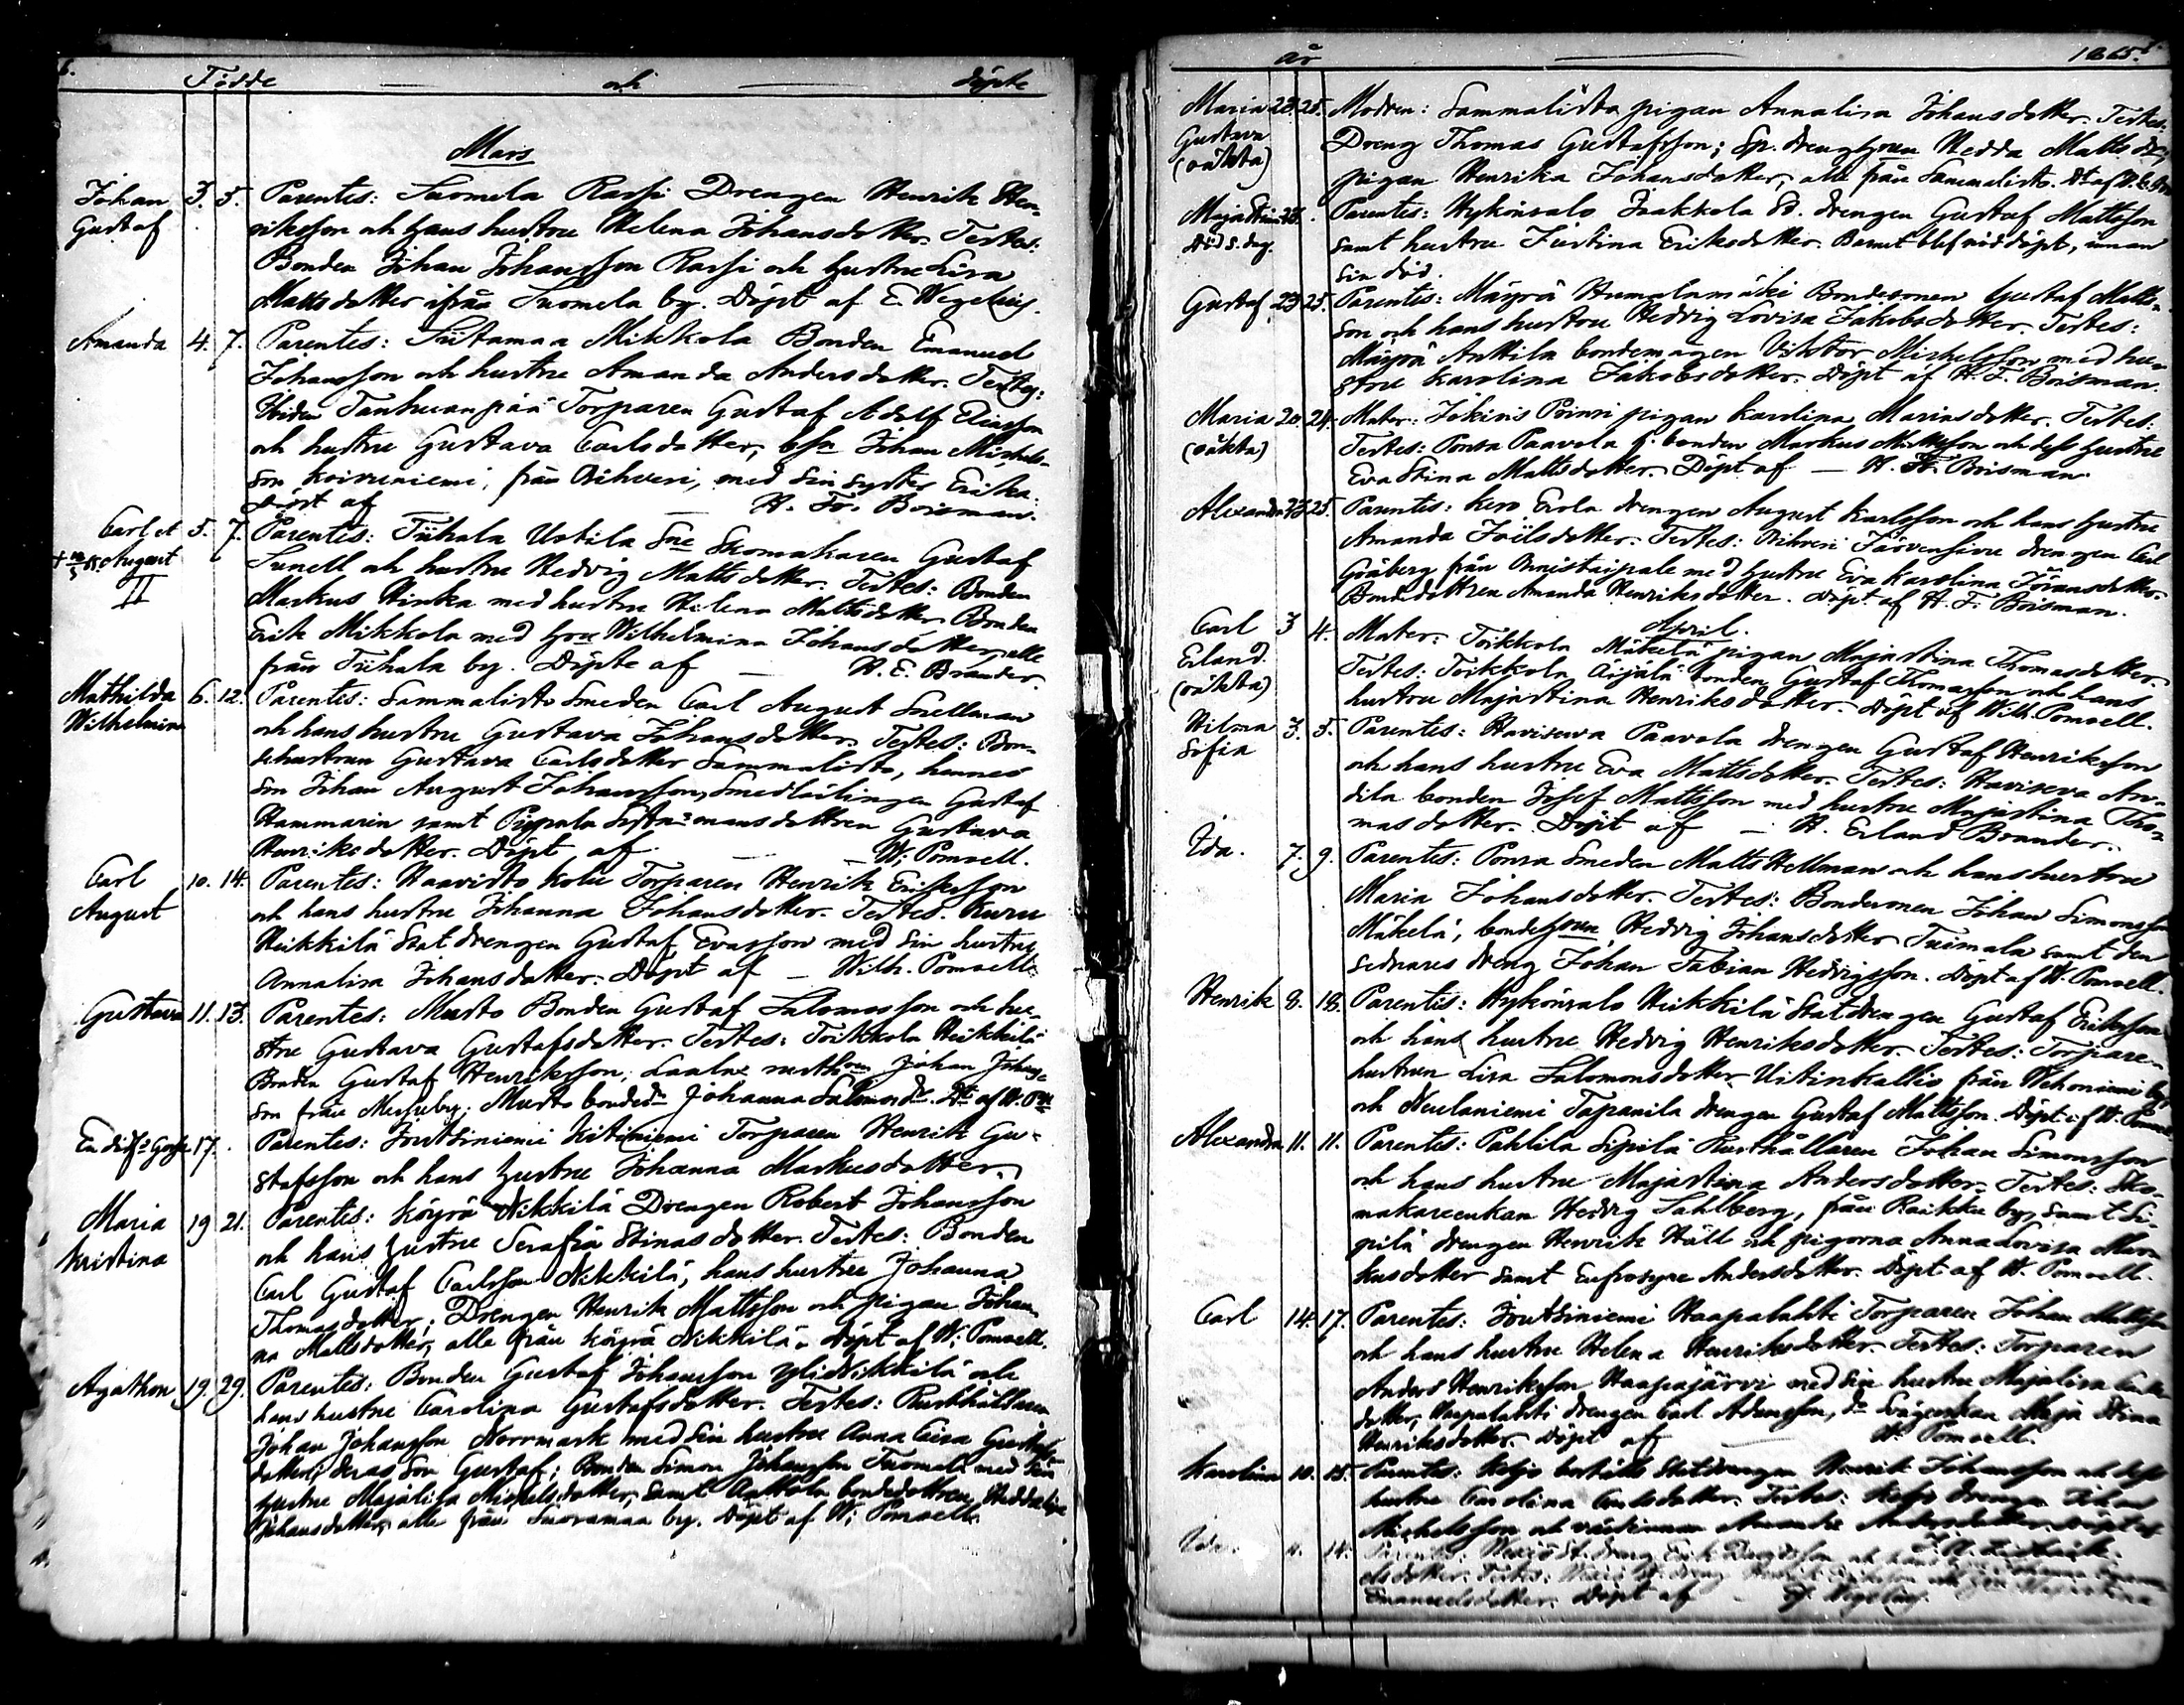 6.
Födde och döpte
Mars
Johan 3. 5. Parentes: Suomela Rassi Drengen Henrik Hen-
Gustaf riksson och hans hustru Helena Johansdotter. Testes:
Bonden Johan Johansson Rassi och hustru Lisa
Mattsdotter ifrån Suomela by. Döpt af E. Wegelius.
Amanda 4. 7. Parentes: Mikkola Bonden Emanuel
Johansson och hustru Amanda Andersdotter. Testes:
Torparen Gustaf Adolf Eliasson
och hustru Gustava Carlsdotter, Johan Michels-
son Koivuniemi, från med sin syster Erika.
Döpt af — H. Fr. Boisman.
Carl et 5. 7. Parentes: Tiihala Uotila Skomakaren Gustaf
August Sunell och hustru Hedvig Mattsdotter. Testes: Bonden
II Markus Hinka med hustru Helena Mattsdotter, Bonden
Erik Mikkola med Wilhelmina Johansdotter, alle
från Tiihala by. Döpte af — H. E. Brander.
Mathilda 6. 12. Parentes: Sammalisto Smeden Carl August Snellman
Wilhelmina och hans hustru Gustava Johansdotter. Testes: Bon-
dehustrun Gustava Carlsdotter Sammalisto, hennes
son Johan August Johansson, Smedlärlingen Gustaf
Hammarin samt dottren Gustava
Henriksdotter. Döpt af — W. Pomoell.
Carl 10. 14. Parentes: Haavisto Torparen Henrik Eriksson
August och hans hustru Johanna Johansdotter. Testes: Kuru
Heikkilä Statdrengen Gustaf Evasson med sin hustru
Annalisa Johansdotter. Döpt af — Wilh. Pomoell.
Gustava 11. 13. Parentes: Musto Bonden Gustaf Salomosson och hu-
stru Gustava Gustafsdotter. Testes: Toikkola Heikkilä
Bonden Gustaf Henriksson, Johan Johans-
son från by. Musto Johanna
17. Parentes: Joutsiniemi Torparen Henrik Gu-
stafsson och hans hustru Johanna Markusdotter.
Maria 19 21. Parentes: Köyrä Nikkilä Drengen Robert Johansson
Kristina och hans hustru Serafia Stinasdotter. Testes: Bonden
Carl Gustaf Carlsson Nikkilä, hans hustru Johanna
Thomasdotter; Drengen Henrik Mattsson och pigan Johan-
na Mattsdotter, alle från Köyrä Nikkilä. Döpt af W. Pomoell.
Agathon 19. 29. Parentes: Bonden Gustaf Johansson och
hans hustru Carolina Gustafsdotter. Testes: Rusthållaren
Johan Johansson Norrmark med sin hustru Anna Caisa Gustafs-
dotter, deras son Gustaf; Bonden Simon Johansson Tuomola med sin
hustru Majalisa Michelsdotter, samt bondedottren
Johansdotter, alle från Suoramaa by. Döpt af W. Pomoell.
år 1865.
Maria 23. 25. Modren: Sammalisto pigan Annalisa Johansdotter. Testes:
Gustava Dreng Thomas Gustafsson; Hedda Matts dr,
(oäkta) pigan Henrika Johansdotter, alle från Sammalisto.
Parentes: Hykönvalo Jaakkola drengen Gustaf Mattsson
samt hustru Justina Eriksdotter. Barnet blef nöddöpt, innan
sin död.
Gustaf 23 25. Parentes: Mäyrä Humalamäki Bondesonen Gustaf Matts-
son och hans hustru Hedvig Lovisa Jakobsdotter. Testes:
Mäyrä Anttila bondemågen Viktor Michelsson med hu-
stru Karolina Jakobsdotter. Döpt af H. F. Boisman.
Maria 20. 24. Mater: Jokinis pigan Karolina Mariasdotter. Testes:
(oäkta) Testes: Ponsa Paavola bonden Markus Mattsson och dess hustru
Eva Stina Mattsdotter. Döpt af — H. Fr. Boisman.
Alexandra 23. 25. Parentes: Kero Eerola drengen August Karlsson och hans hustru
Amanda Testes: drengen Carl
Gråberg från med hustru Eva Karolina
Bondedottren Amanda Henriksdotter. Döpt af H. F. Boisman.
April.
Carl 3 4. Mater: Toikkola Mäkelä pigan Majastina Thomasdotter.
Erland Testes: Toikkola Äijälä bonden Gustaf Thomasson och hans
(oäkta) hustru Majastina Henriksdotter. Döpt af Wilh. Pomoell.
Hilma 3. 5. Parentes: Haviseva Paavola drengen Gustaf Henriksson
Sofia och hans hustru Eva Mattsdotter. Testes: Haviseva An-
tila bonden Josef Mattsson med hustru Majastina Tho-
masdotter. Döpt af — H. Erland Brander.
Ida. 7. 9. Parentes: Ponsa Smeden Matts Hellman och hans hustru
Maria Johansdotter. Testes: Bondesonen Johan Simonsson
Mäkelä, Hedvig Johansdotter Tuimala samt den
sednares dreng Johan Fabian Hedvigsson. Döpt af W. Pomoell.
Henrik 8. 18. Parentes: Hykönvalo Heikkilä Statdrengen Gustaf Eriksson
och hans hustru Hedvig Henriksdotter. Testes: Torpare-
hustrun Lisa Salomonsdotter från Wehoniemi by,
och Neulaniemi Tapanila drengen Gustaf Mattsson. Döpt af W. Pomoell
Alexandra 11. 11. Parentes: Pahlila Sipilä Rusthållaren Johan Simonsson
och hans hustru Majastina Andersdotter. Testes: Sko-
makareenkan Hedvig Sahlberg, från Raikku by, samt Si-
pilä drengen Henrik Häll och pigorna Anna Lovisa Mar-
kusdotter samt Eufrosyne Andersdotter. Döpt af W. Pomoell.
Carl 14. 17. Parentes: Joutsiniemi Haapalahti Torparen Johan Mattsson
och hans hustru Helena Henriksdotter. Testes: Torparen
Anders Henriksson Haapajärvi med sin hustru Majalisa
dotter, Haapalahti drengen Carl Adamsson, Maja Stina
Henriksdotter. Döpt af W. Pomoell.
Karolina 10. 15. Parentes: Statdrengen Henrik Johansson och dess
hustru Carolina Carlsdotter. Testes: drengen Johan
Michelsson och Amanda Andersdotter. Döpt af
Ida 14. Parentes: Erik Davidsson och
dotter. Testes:
Emanuelsdotter. Döpt af — Wegelius.